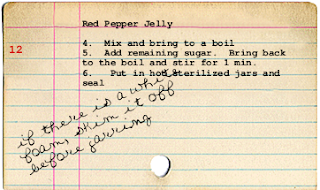 Red Pepper Jelly
12
4. Mix and bring to a boil
5. Add remaining sugar. Bring back
to the boil and stir for 1 min.
6. Put in hot sterilized jars and
seal
if there is a white
foam, skim it off
before jarring